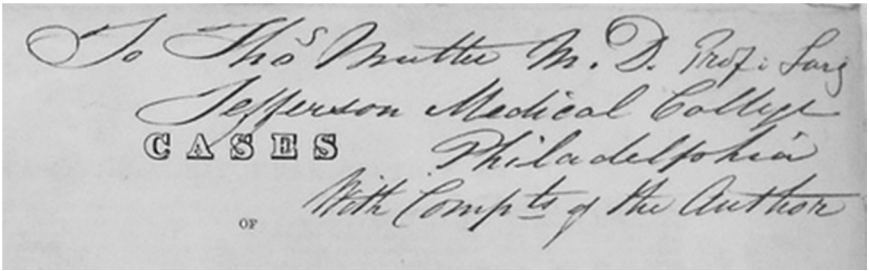 To Thos Mutter M.D. Prof: Surg
Jefferson Medical College
CASES
Philadelphia
With Compts of the Author
OF